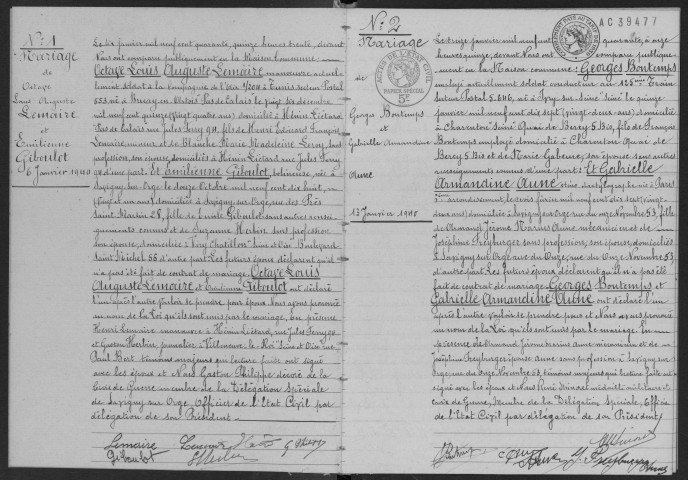 N: 1
Mariage
de
Octave
Louis Auguste
Lemaire
et
Emilienne
Giboulot
6 Janvier 1940
Le six janvier mil neuf cent quarante, quinze heures trente, devant
Nous ont comparu publiquement en la Maison Commune:
Octave Louis Auguste Lemaire manoeuvre actuel
lement soldat à la Compagnie de
né à Pas de Calais le vingt six décembre
mil neuf cent quinze (vingt quatre ans) domicilié à Hénin Liétard
Pas de Calais rue Jules Ferry 94, fils de Henri Edouard François
Lemaire et de Blanche Marie Madeleine Leroy sans
profession, son épouse domiciliés à Hénin Liétard rue Jules Ferry
d'une part. Et Emilienne Giboulot, née à
Savigny sur Orge le douze Octobre mil neuf cent dix huit,
(vingt et un ans) domiciliée à Savigny sur Orge rue des Prés
Saint Martin 28, fille de Giboulot sans autres rensei
gnements connus et de Suzanne Herbin sans profession
son épouse, domiciliée à Viry Chatillon Seine et Oise Boulevard
Saint Michel 55 d'autre part. Les futurs époux déclarent qu'il
n'a pas été fait de contrat de mariage. Octave Louis
Auguste Lemaire et Emilienne Giboulot ont déclaré
l'un après l'autre vouloir se prendre pour époux. Nous avons prononcé
au nom de la Loi qu'ils sont unis par le mariage. En présence
Henri Lemaire manoeuvre à Hénin Liétard, rue Jules Ferry
et Gaston Herbin, à Villeneuve le Roi Seine et Oise rue
Paul Bert témoins majeurs qui lecture faite ont signé
avec les époux et Nous Gaston Philippe décoré de la
Croix de Guerre membre de la Délégation Spéciale
de Savigny sur Orge Officier de l'Etat Civil par
délégation de son Président
Lemaire
Giboulot
N: 2
Mariage
de
Georges Bontemps
et
Gabrielle Armandine
Aune
13 Janvier 1940
ACTES DE L'ETAT CIVIL
PAPIER SPECIAL
5F
AC 39477
Le treize janvier mil neuf cent quarante, à onze
heures quinze, devant Nous ont comparu publique
ment en la Maison commune: Georges Bontemps
employé actuellement soldat conducteur au 125ème Train
Secteur Postal 5.646, né à Ivry sur Seine Seine le quinze
janvier mil neuf cent dix sept (vingt deux ans) domicilié à
Charenton Seine Quai de Bercy 5 Bis, fils de François
Bontemps employé domicilié à Charenton Quai de
Bercy 5 Bis et de Marie son épouse sans autres
renseignements connus d'une part: Et Gabrielle
Armandine Aune sténo dactylographe née à Paris
arrondissement, le trois février mil neuf cent dix sept (vingt
deux ans) domiciliée à Savigny sur Orge rue du onze Novembre 53, fille
de Armand Jérome Marius Aune mécanicien et de
Joséphine Freyburger sans profession, son épouse, domiciliés
à Savigny sur Orge rue du Onze Novembre 53
d'autre part. Les futurs époux déclarent qu'il n'a pas été
fait de contrat de mariage. Georges Bontemps et
Gabrielle Armandine Aune ont déclaré l'un
après l'autre vouloir se prendre pour époux et Nous avons prononcé
au nom de la Loi qu'ils sont unis par le mariage. En
présence de Armand Jérome Marius Aune mécanicien et de
Joséphine Freyburger épouse Aune sans profession à Savigny sur
Orge rue du Onze Novembre 53, témoins majeurs qui lecture faite ont
signé avec les époux et Nous René médaillé militaire et
croix de Guerre, Membre de la Délégation Spéciale, Officier
de l'Etat Civil par délégation de son Président